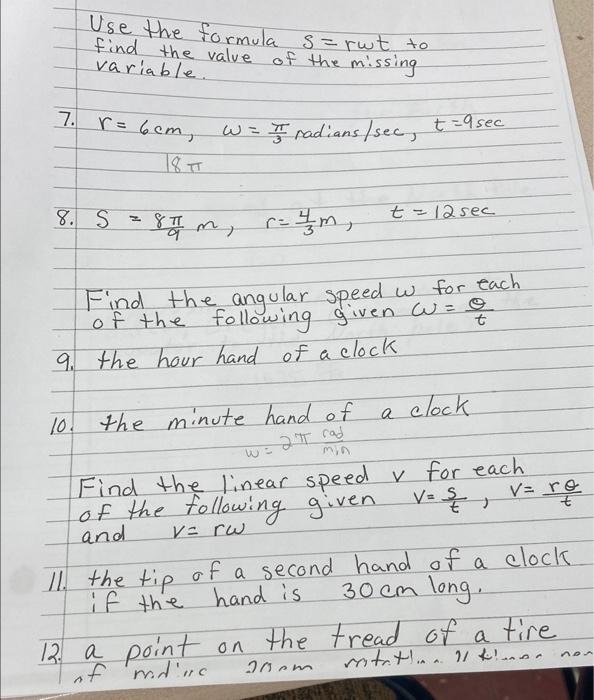 Use the formula s = rwt to
find the value of the missing
variable.
7. r = 6cm, ω = π/3 radians/sec, t = 9sec
18π
8. S = 8π/9 m, r = 4/3 m, t = 12 sec
Find the angular speed ω for each
of the following given ω = θ/t
9. the hour hand of a clock
10. the minute hand of a clock
ω = 2π rad/min
Find the linear speed v for each
of the following given v = s/t, v = rθ/t
and v = rω
11. the tip of a second hand of a clock
if the hand is 30 cm long.
12. a point on the tread of a tire
of